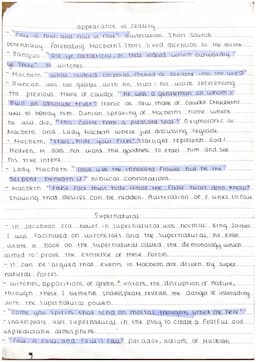 appearance vs reality
- "Fair is foul, and foul is fair" Alliteration. Short sounds
foreboding Macbeth's
- Banquo "are ye fantastical, or that indeed which outwardly
ye show" to witches.
- Macbeth "what seemed corporal, melted as breath into the wind"
- Duncan was too with his trust. his words referencing
the previous thane of cawdor "He was a gentleman on whom I
built an absolute trust" Ironic as new thane of cawdor (Macbeth)
was to betray him. Duncan speaking of Macbeth's home where
he will die, "this castle hath a pleasant seat". Oxymoronic as
Macbeth and Lady Macbeth were just discussing regicide.
- Macbeth, "Stars, hide your fires" Starlight represents God/
Heaven, M does not want the goodness to enter him and see
his true intent.
- Lady Macbeth, "look like the innocent flower but be the
serpent beneath it" Biblical connotations.
- Macbeth "False face must hide what the false heart doth know"
showing that desires can be hidden. Alliteration of f links to
Supernatural
- In Jacobean era belief in supernatural was normal. King James
I was fascinated in witchcrafts and the supernatural, he even
wrote a book on the supernatural called the demonology which
aimed to prove the existence of these forces
- It can be argued that events in Macbeth are driven by super
natural forces
- witches, apparitions of ghosts + visions, the disruption of nature,
through these elements shakespeare reveals the dangers of interacting
with the supernatural powers.
- "Come you spirits that tend on mortal thoughts, unsex me here"
- Shakespeare uses supernatural in the play to create a fearful and
unpredictable atmosphere.
- "Fair is foul, and foul is fair"